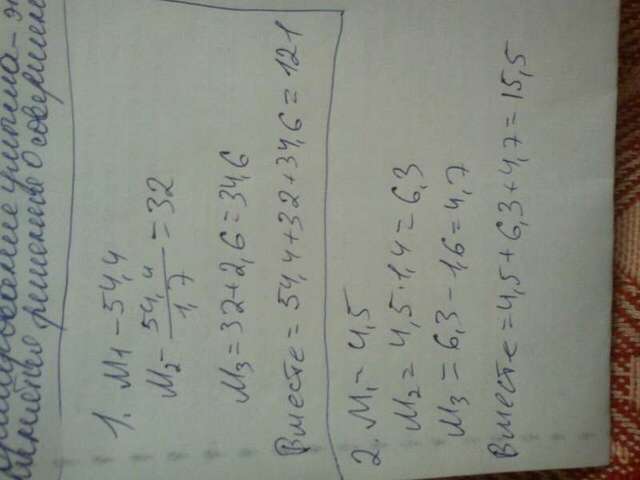 решение о соверше
1. M1 - 54,4
M2 - 54,4 / 1,7 = 32
M3 = 32 + 2,6 = 34,6
Вместе = 54,4 + 32 + 34,6 = 121
2. M1 = 4,5
M2 = 4,5 · 1,4 = 6,3
M3 = 6,3 - 1,6 = 4,7
Вместе = 4,5 + 6,3 + 4,7 = 15,5